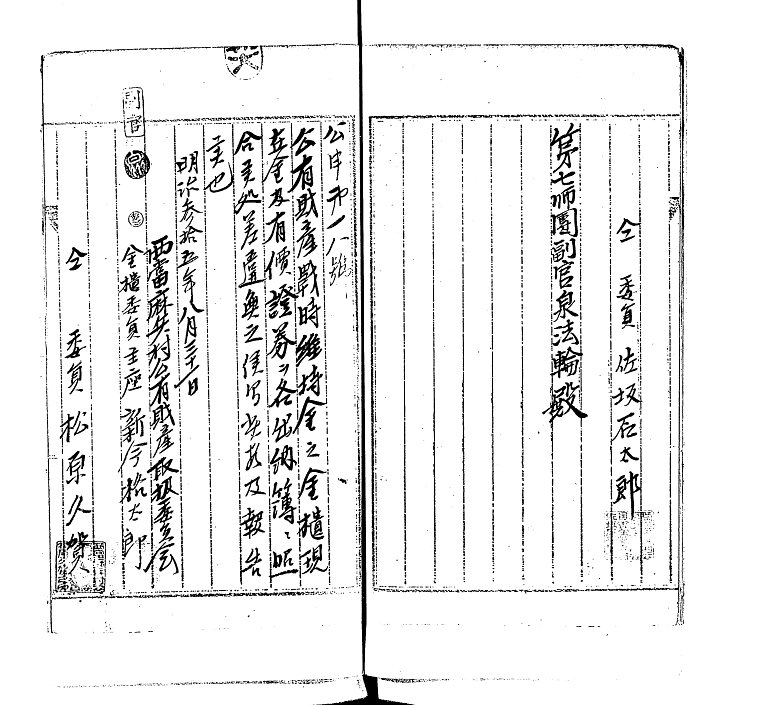 仝 委員 佐坂石太郎
第七師團副官泉法輪殿
公甲第一八號
公有財産戰時維持金之金櫃現
在金及有價證券ヲ各出納簿ニ照
合候処差違無之候間此段及報告
候也
明治参拾五年八月三十一日
西當麻兵村公有財産取扱委員会
金櫃委員主座 新今格太郎
仝 委員 松原久賀
副官